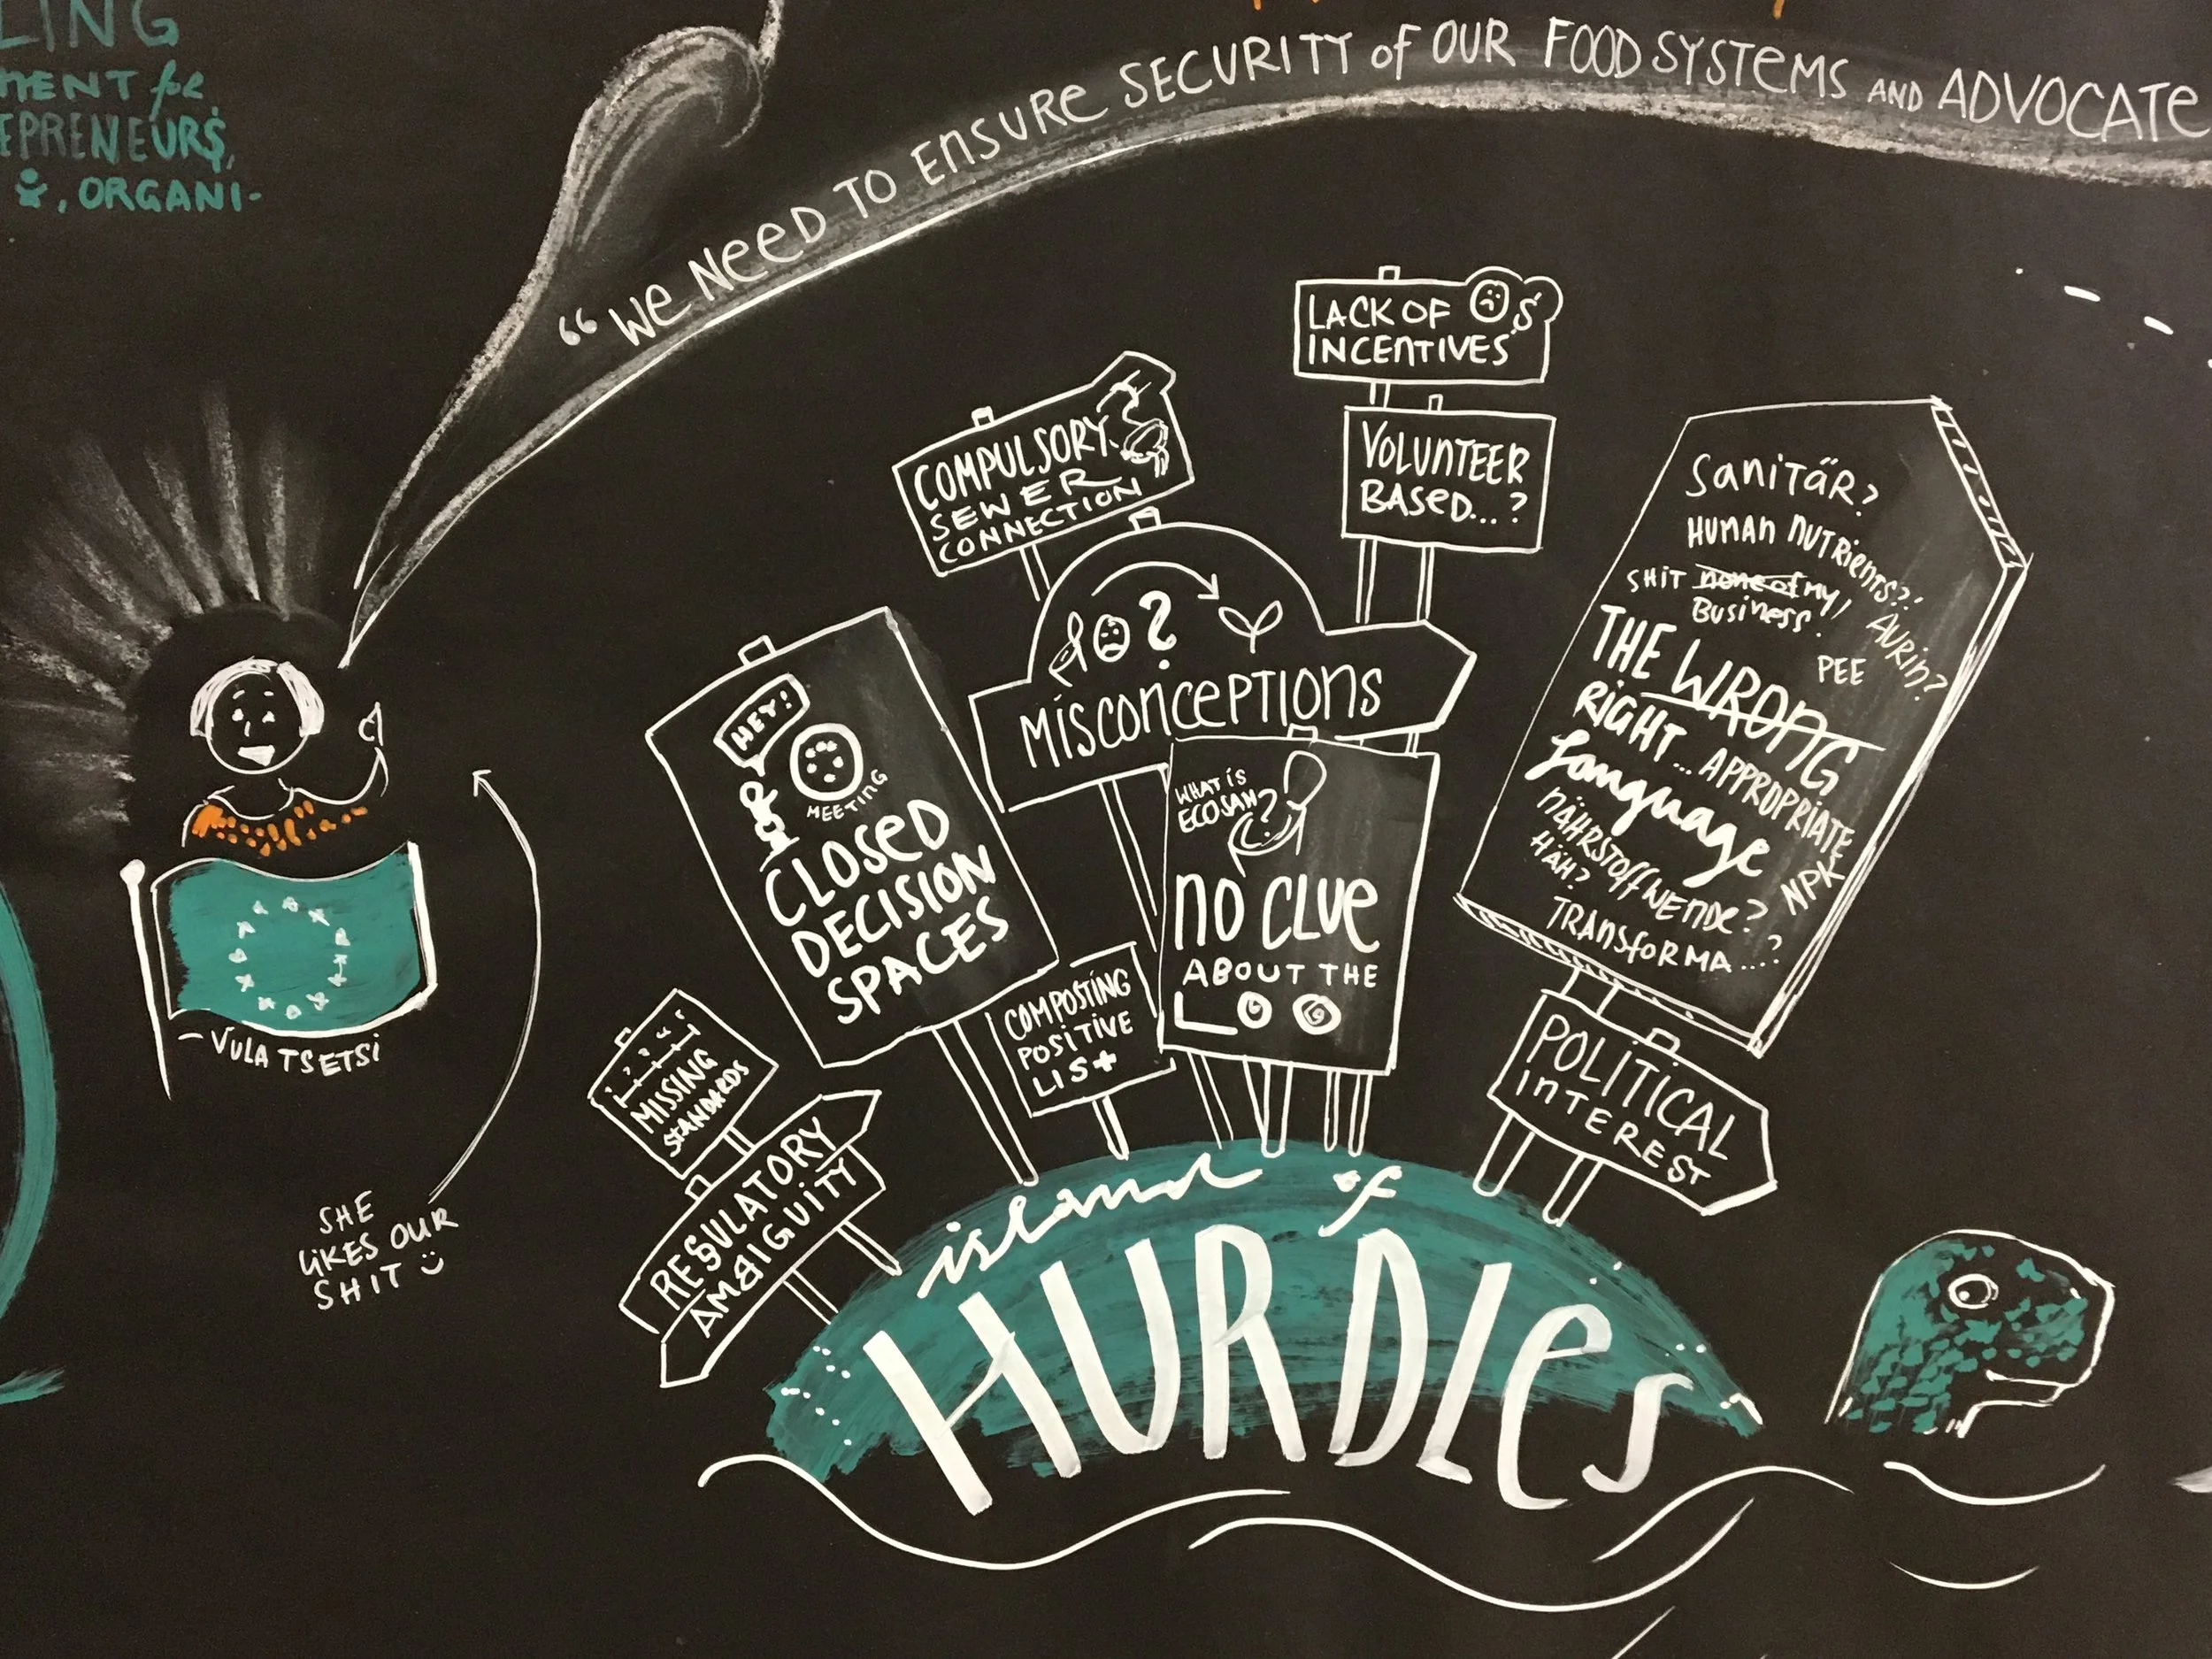 LING
MENT for
EPRENEURS,
, ORGANI-
"WE NEED TO ENSURE SECURITY of OUR FOOD SYSTEMS AND ADVOCATE
- VULA TSETSI
SHE
LIKES OUR
SHIT
LACK OF 'S
INCENTIVES
VOLUNTEER
BASED...?
COMPULSORY
SEWER
CONNECTION
?
MISCONCEPTIONS
HEY!
MEETING
CLOSED
DECISION
SPACES
WHAT IS
ECOSAN?
NO CLUE
ABOUT THE
LOO
COMPOSTING
POSITIVE
LIST
? ? "
MISSING
STANDARDS
REGULATORY
AMBIGUITY
SANITÄR?
HUMAN NUTRIENTS?!
SHIT none of MY
BUSINESS!
AURIN?
PEE
THE WRONG
RIGHT... APPROPRIATE
Language
NPK
NÄHRSTOFFWENDE?
HÄH?
TRANSFORMA...?
POLITICAL
INTEREST
island of
HURDLES